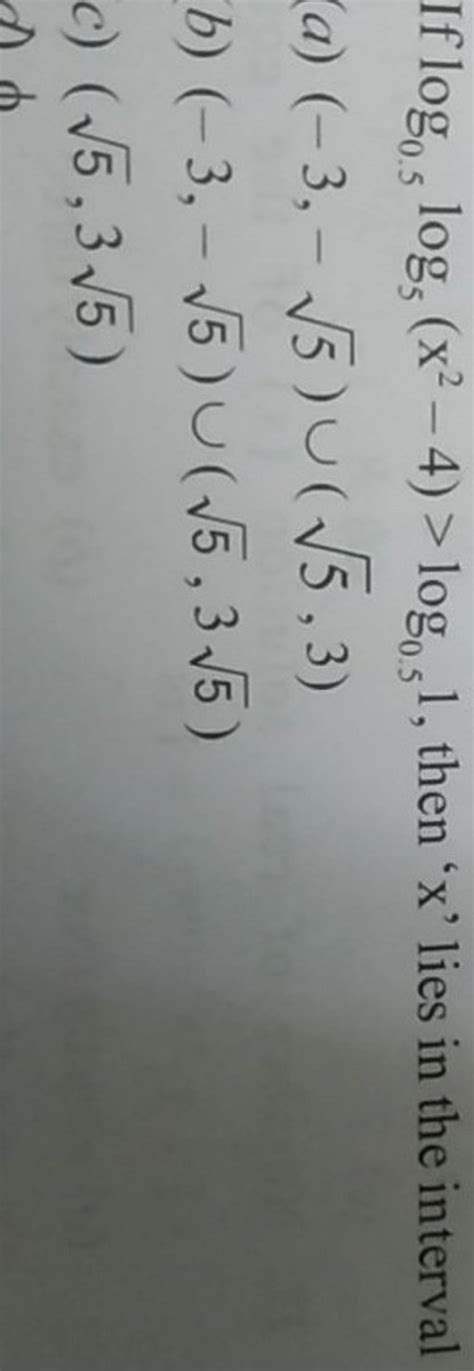 If log₀.₅ log₅ (x² – 4) > log₀.₅ 1, then ‘x’ lies in the interval
(a) (– 3, – √5 ) ∪ ( √5 , 3)
b) (– 3, – √5 ) ∪ ( √5 , 3 √5 )
c) ( √5 , 3 √5 )
d) ϕ